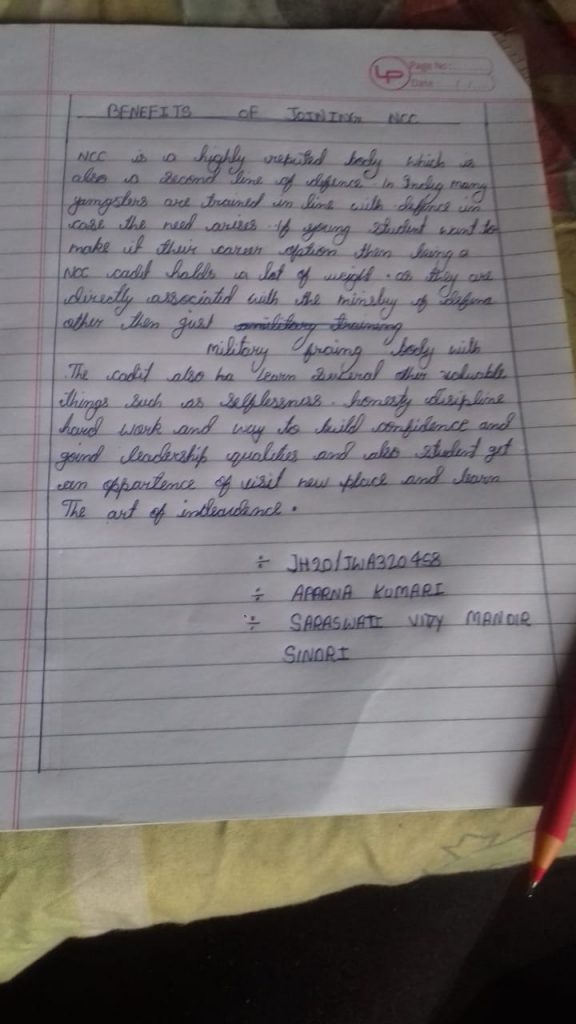 LP
Page No:
Date: / /
BENEFITS OF JOINING NCC
NCC is a highly reputed body which is
also a second line of defence. In India many
yangsters are trained in line with defence in
case the need arises. If young student want to
make it their career option then being a
NCC cadit holds a lot of weight. as they are
directly associated with the ministry of defence
other then just military training
military body with
The cadit also ha learn several other valuable
things such as selflessness. honesty discipline
hard work and way to build confidence and
goind leadership qualities and also student get
an of visit new place and learn
The art of
÷ JH20/JWA320458
÷ APARNA KUMARI
÷ SARASWATI VIDY MANDIR
SINDRI